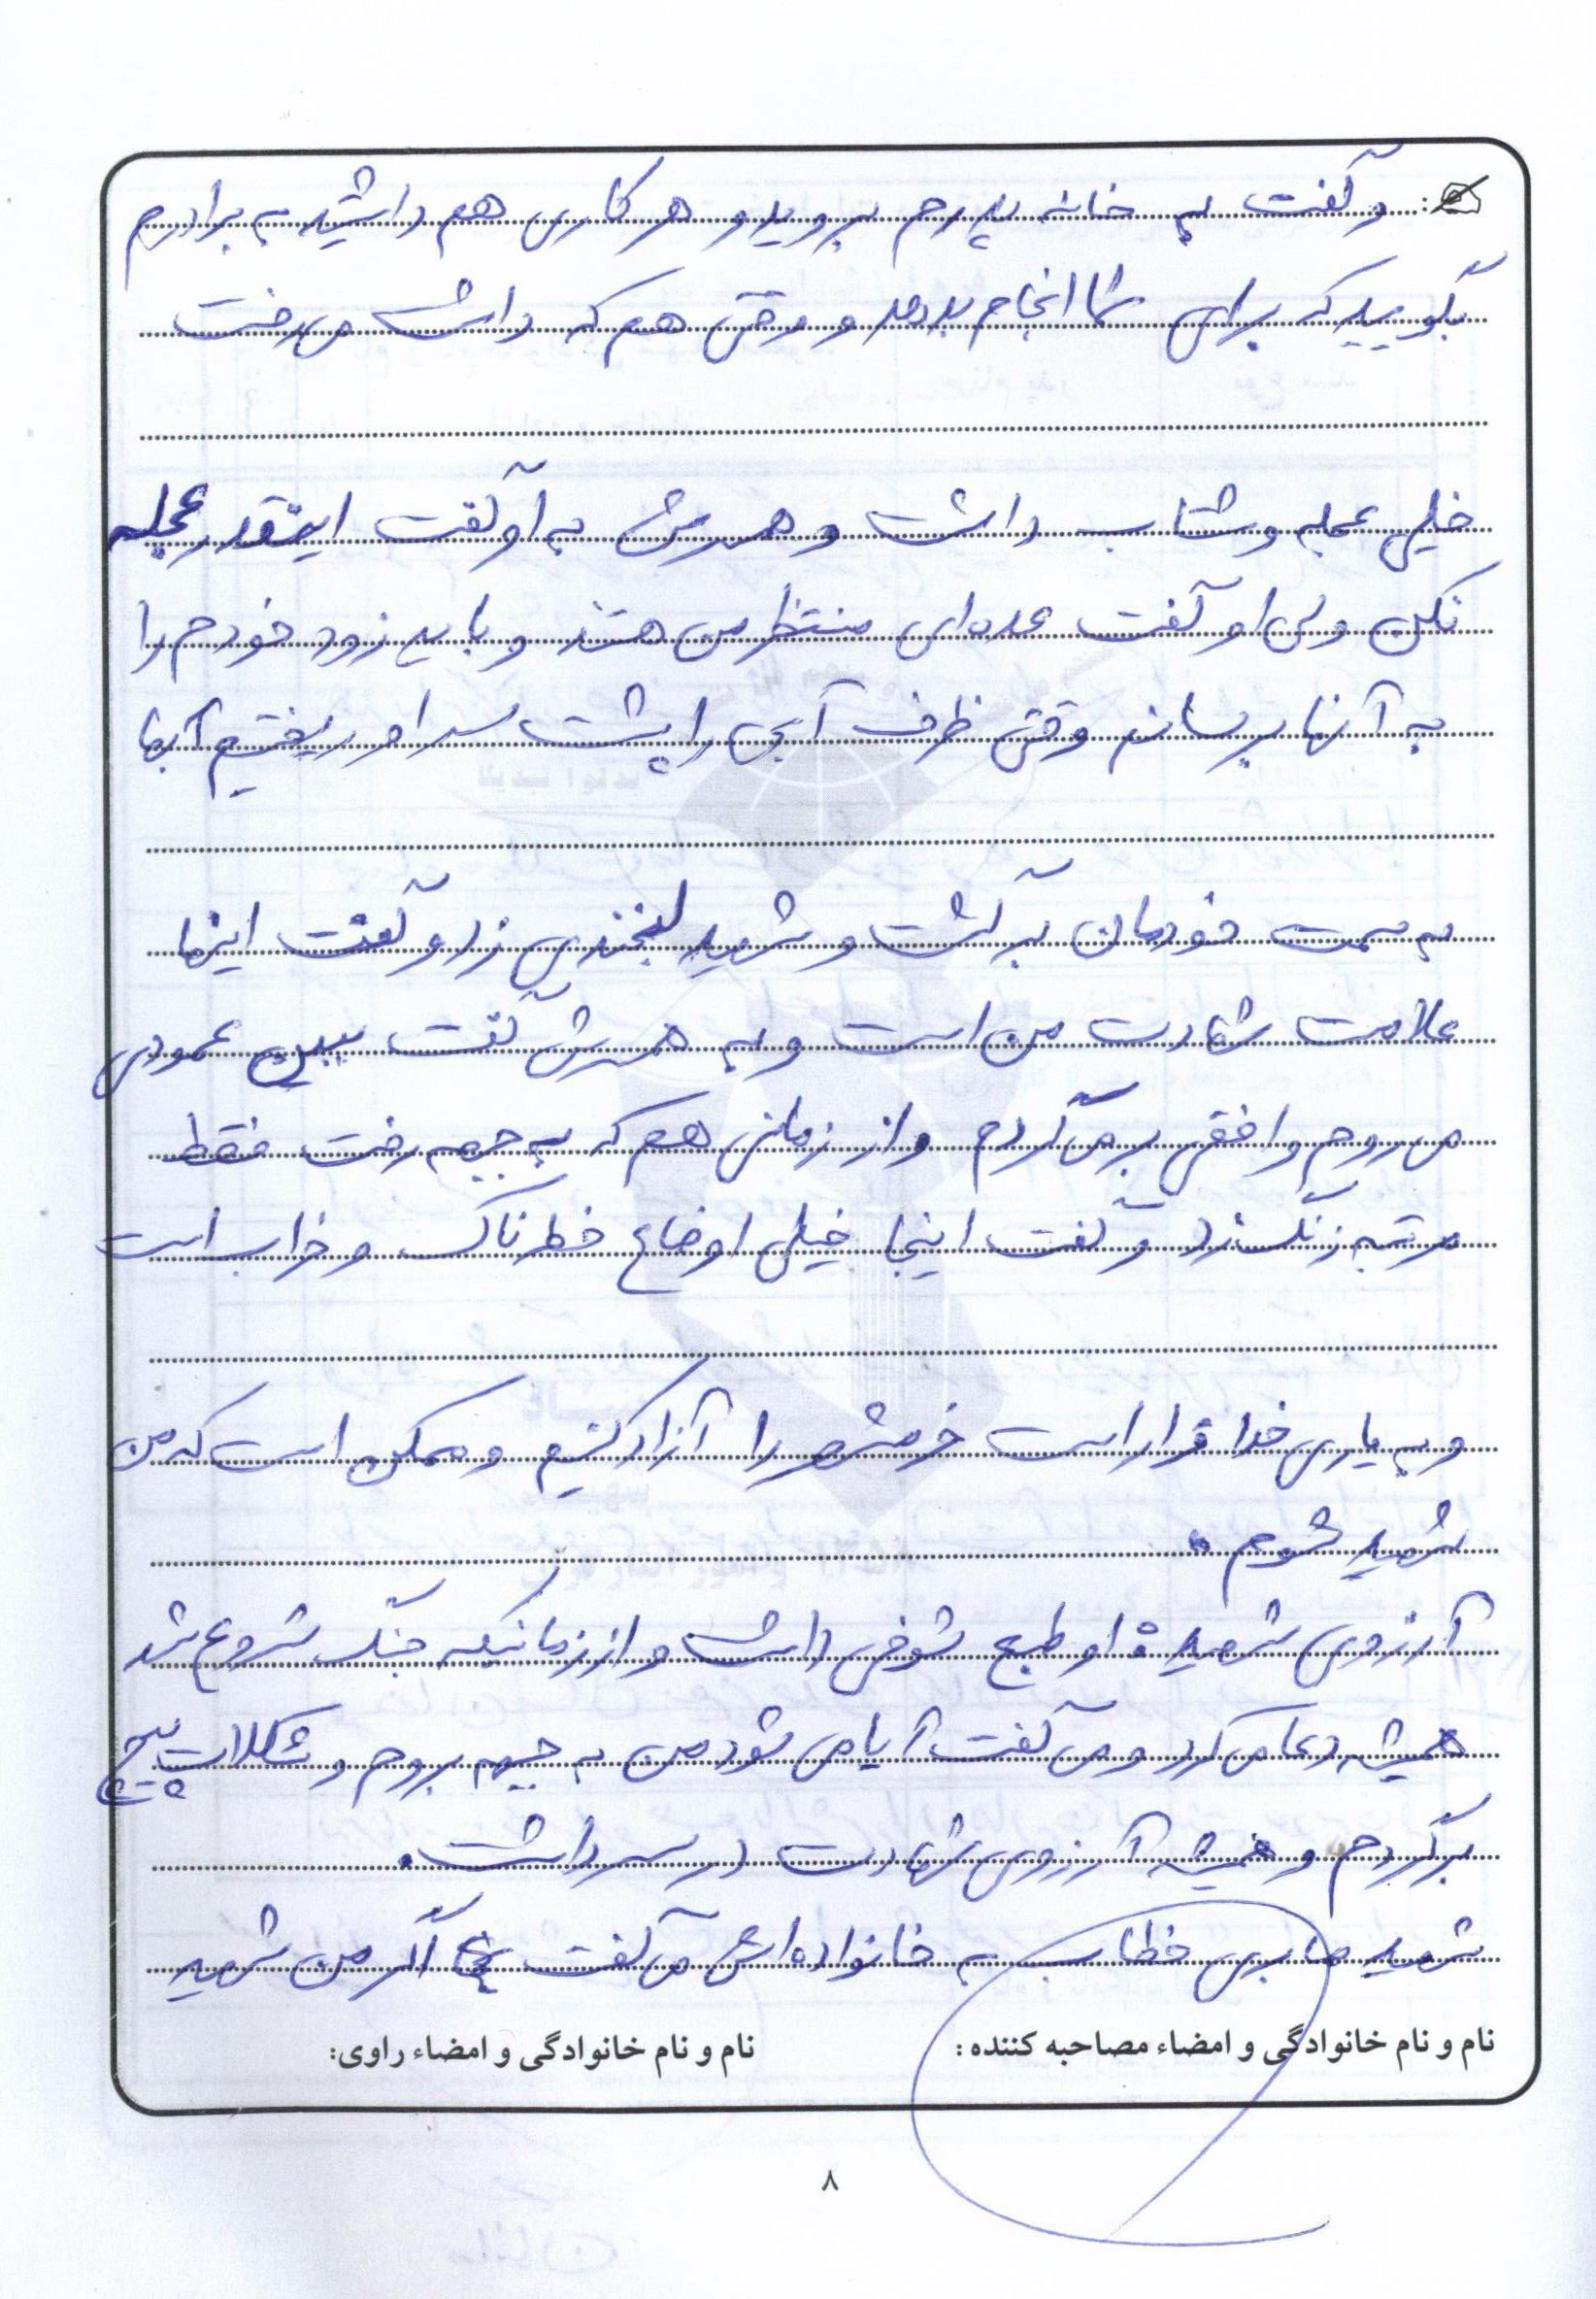 و گفت به خانه پدرم بروید و هر کاری هم داشتید به برادرم
بگویید که برای شما انجام بدهد و وقتی هم که داشت می رفت
خیلی عجله و شتاب داشت و همسرش به او گفت اینقدر عجله
نکن ولی او گفت عده ای منتظر من هستند و باید زود خودم را
به آنها برسانم وقتی ظرف آبی را پشت سر او ریختیم آبها
به سمت خودمان برگشت و شهید لبخندی زد و گفت اینها
علامت شهادت من است و به همسرش گفت ببین عمودی
می روم و افقی بر می گردم و از زمانی هم که به جبهه رفت فقط
مرتبه زنگ زد و گفت اینجا خیلی اوضاع خطرناک و خراب است
و به یاری خدا قرار است خرمشهر را آزاد کنیم و ممکن است که من
شهید شوم .
آرزوی شهید : او طبع شوخی داشت و از زمانیکه جنگ شروع شد
همیشه دعا می کرد و می گفت آیا می شود من به جبهه بروم و شکلات پیچ
برگردم و همیشه آرزوی شهادت در سر داشت .
شهید صابری خطاب به خانواده اش می گفت اگر من شهید
نام و نام خانوادگی و امضاء مصاحبه کننده : نام و نام خانوادگی و امضاء راوی:
۸